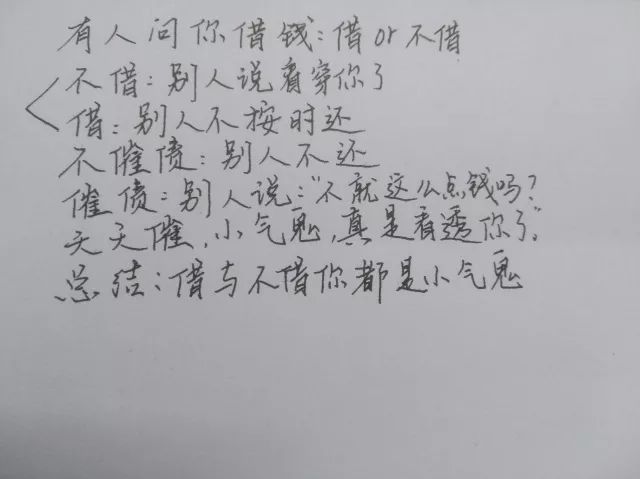 有人问你借钱:借or不借
不借:别人说看穿你了
借:别人不按时还
不催债:别人不还
催债:别人说:"不就这么点钱吗?
天天催,小气鬼,真是看透你了。"
总结:借与不借你都是小气鬼